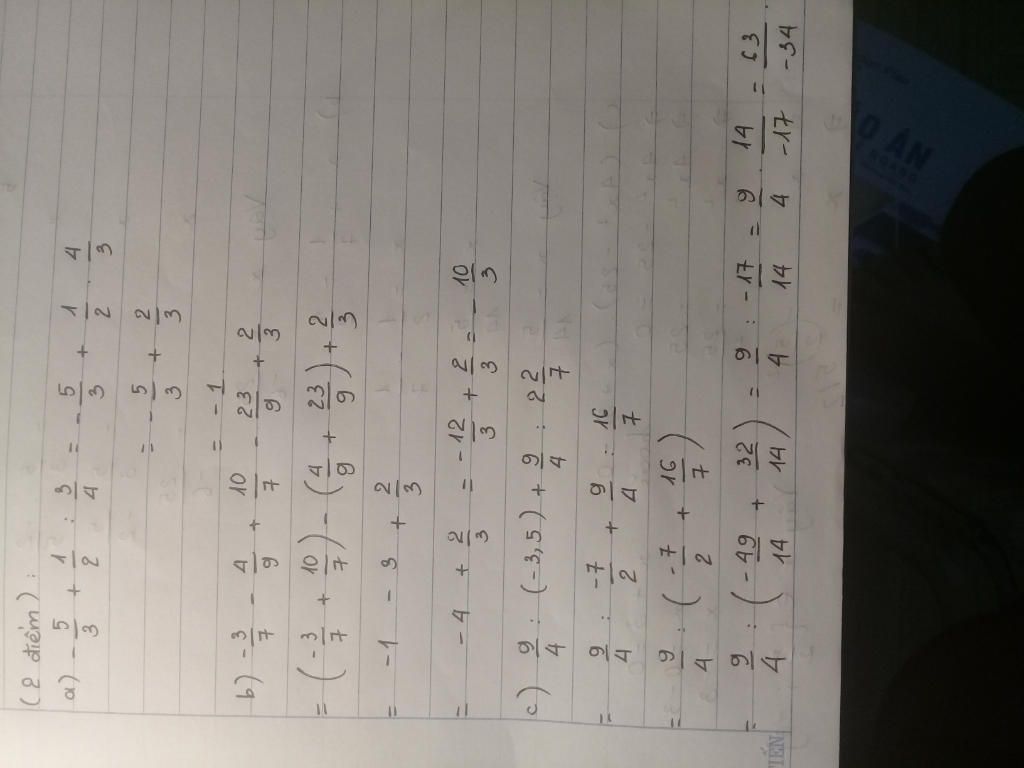 (2 điểm):
a) -5/3 + 1/2 : 3/4 = -5/3 + 1/2 . 4/3
= -5/3 + 2/3
= -1
b) -3/7 - 4/9 + 10/7 - 23/9 + 2/3
= (-3/7 + 10/7) - (4/9 + 23/9) + 2/3
= -1 - 3 + 2/3
= -4 + 2/3 = -12/3 + 2/3 = -10/3
c) 9/4 : (-3,5) + 9/4 : 2 2/7
= 9/4 : -7/2 + 9/4 : 16/7
= 9/4 : (-7/2 + 16/7)
= 9/4 : (-49/14 + 32/14) = 9/4 : -17/14 = 9/4 . 14/-17 = 63/-34
TIẾN
ÁN